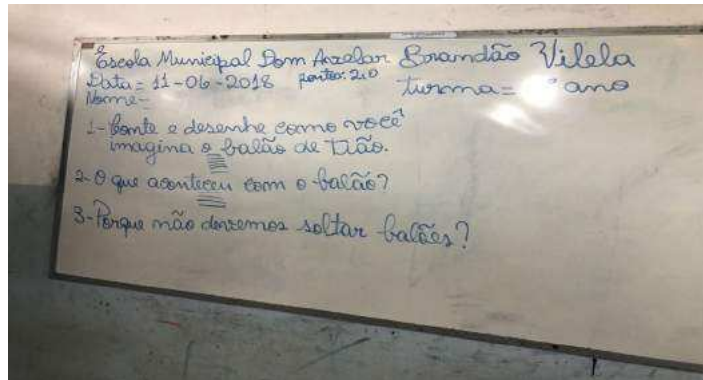 Escola Municipal Dom Avelar Brandão Vilela
Data = 11-06-2018 pontos: 2,0 turma= ° ano
Nome-
1- Conte e desenhe como você
imagina o balão de Tião.
2- O que aconteceu com o balão?
3- Porque não devemos soltar balões?